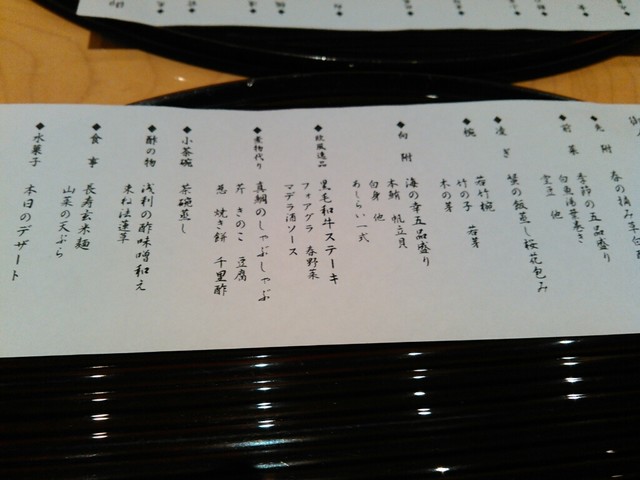 春の摘み草白
◆先附
季節の五品盛り
◆前菜
白東湯葉巻き
空豆 他
◆凌ぎ
蟹の飯蒸し桜花包み
◆椀
若竹椀
竹の子 若芽
木の芽
◆向附
海の幸五品盛り
本鮪 帆立貝
白身 他
あしらい一式
◆欧風逸品
黒毛和牛ステーキ
フォアグラ 春野菜
マデラ酒ソース
◆煮物代り
真鯛のしゃぶしゃぶ
芹 きのこ 豆腐
葱 焼き餅 千里酢
◆小茶碗
茶碗蒸し
◆酢の物
浅利の酢味噌和え
束ね法蓮草
◆食事
長寿玄米麺
山菜の天ぷら
◆水菓子
本日のデザート